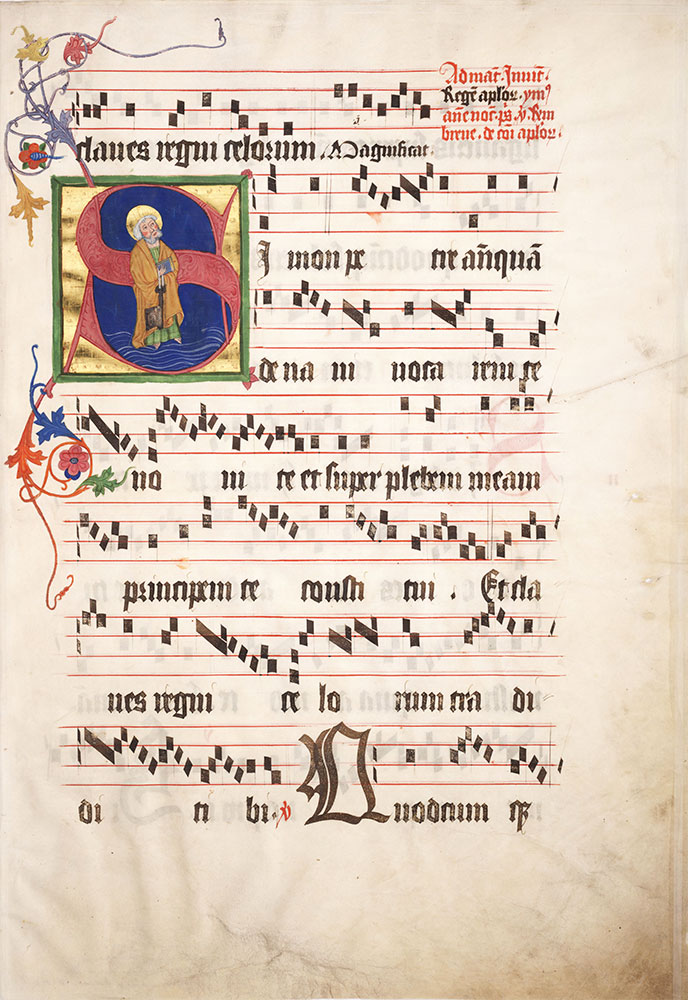 Ad mat̄. Inuit̄.
Regē aplor̄. ymꝰ
an̄e noct̄. ps̄. ꝟ. Rem
breue. de cōi aplor̄.
claues regni celorum. Magnificat.
Simon pe tre an̄quā
de na ui uoca rem te
no ui te et super plebem meam
principem te consti tui . Et cla
ues regni ce lo rum tra di
di ti bi. ꝟ Quodcum qꝫ